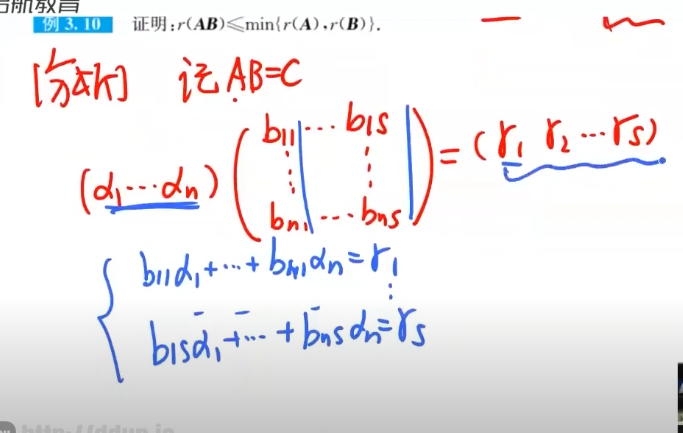 启航教育
例 3.10 证明:r(AB)≤min{r(A),r(B)}.
[分析] 记AB=C
(α₁⋯αₙ) (b₁₁ ⋯ b₁ₛ
⋮ ⋮
bₙ₁ ⋯ bₙₛ) = (γ₁ γ₂ ⋯ γₛ)
b₁₁α₁+⋯+bₙ₁αₙ=γ₁
⋮
b₁ₛα₁+⋯+bₙₛαₙ=γₛ